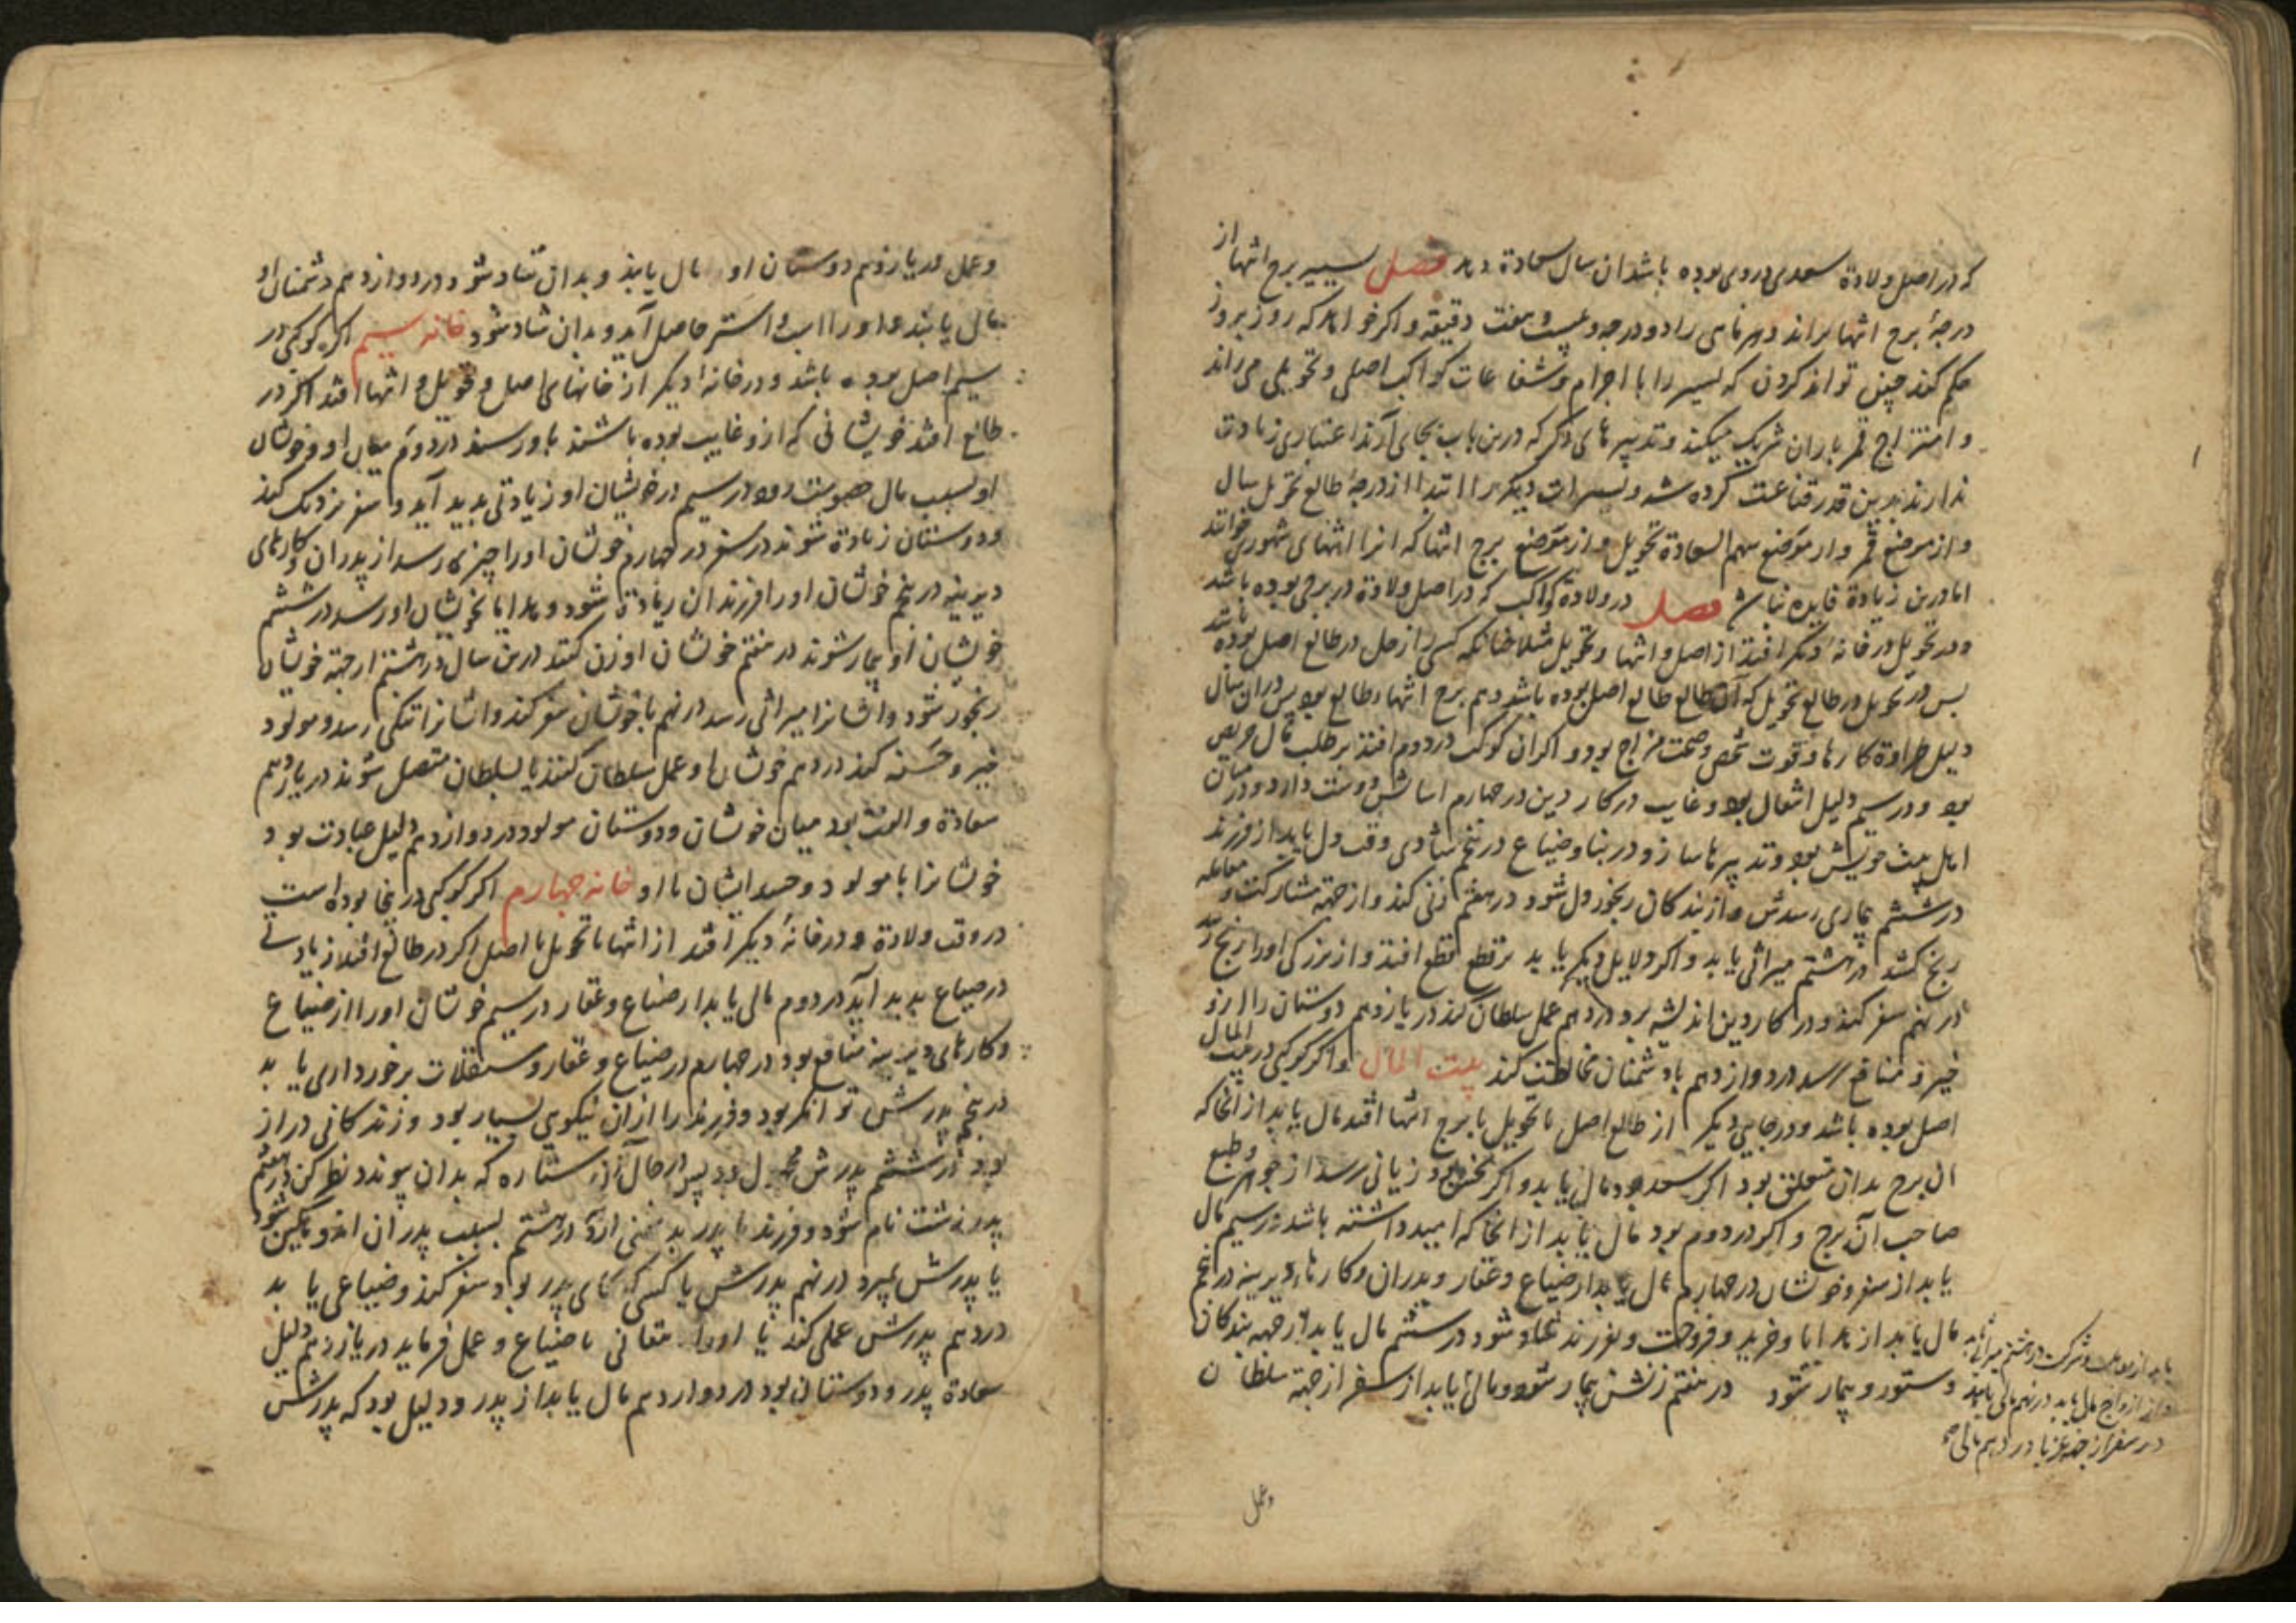 که در اصل ولادة سعدی دروی بوده باشد ان سال سعادة دهد فصل تسییر برج انتها از
درجهٔ برج انتها براند و هر ماهی را دو درجه و بیست و هفت دقیقه و اکر خواهد که روز بروز
حکم کند چنین تواند کردن که تسییر را با اجرام و شعاعات کواکب اصلی و تحویلی می راند
و امتزاج قمر با ان شریک میکند و تدبیرهای دکر که درین باب بجای آرند اعتباری زیادت
ندارند بدین قدر قناعت کرده شد و تسییرات دیکر را ابتدا از درجهٔ طالع تحویل سال
و از موضع قمر و از موضع سهم السعادة تحویل و از موضع برج انتها که انرا انتهای شهوری خوانند
اما درین زیادة فایده نباشد فصل در ولادة کواکب که در اصل ولادة در برجی بوده باشد
و در تحویل در خانهٔ دیکر افتد از اصل و انتها و تحویل مثلا چنانکه کسی را زحل در طالع اصل بوده باشد
پس در تحویل در طالع تحویل که آن طالع طالع اصل بوده باشد و هم برج انتها و طالع بود پس دران سال
دلیل طراوة کارها و قوت شخص و صحت مزاج بود و اکر ان کوکب در دوم افتد بر طلب مال حریص
بود و در سیم دلیل اشغال بود و غایب در کار دین در چهارم اسایش دوست دارد و در میان
اهل بیت خویش بود و تدبیرها سازد در بنا و ضیاع در پنجم شادی وقت دل یابد از فرزند
در ششم بیماری رسدش و از بندکان رنجور دل شود در هفتم زنی کند و از جهة مشارکت و معامله
رنج کشد در هشتم میراثی یابد و اکر دلایل دیکر یابد بر قطع قطع افتد و از بزرکی او را رنج رسد
در نهم سفر کند و در کار دین اندیشه برد در دهم عمل سلطان کند در یازدهم دوستان را ازو
خیر و منافع رسد در دوازدهم با دشمنان مخالطت کند بیت المال و اکر کوکبی در بیت المال
اصل بوده باشد و در جایی دیکر از طالع اصل یا تحویل یا برج انتها افتد مال یابد از انجا که
ان برج بدان متعلق بود اکر سعد بود مال یابد و اکر نحس بود زیانی رسد از جوهر و طبع
صاحب آن برج و اکر در دوم بود مال یابد از انجا که امید داشته باشد در سیم مال
یابد از سفر و خویشان در چهارم مال یابد از ضیاع و عقار و پدران و کارهاء دیرینه در پنجم
مال یابد از هدایا و خرید و فروخت و بفرزند شاد شود در ششم مال یابد از جهة بندکان
و ستور و بیمار شود در هفتم زنش بیمار شود و مالی یابد از سفر از جهة سلطان
یابد از معاملت و شرکت در هشتم میراثی یابد
و از ازواج مال یابد در نهم مالی یابد
در سفر از جهة غربا در دهم مالی
و عمل
و عمل در یازدهم دوستان او مال یابند و بدان شاد شود در دوازدهم دشمنان او
مال یابند و او را اسب و استر حاصل آید و بدان شاد شود خانه سیم اکر کوکبی در
سیم اصل بوده باشد و در خانهٔ دیکر از خانهای اصل و تحویل و انتها افتد اکر در
طالع افتد خویشانی که ازو غایب بوده باشند باو رسند در دوم میان او و خویشان
او بسبب مال خصومت رود در سیم در خویشان او زیادتی پدید آید و سفر نزدیک کند
و دوستان زیادة شوند در سفر در چهارم خویشان او را چیزی رسد از پدران و کارهای
دیرینه در پنجم خویشان او را فرزندان زیادة شود و هدایا بخویشان او رسد در ششم
خویشان او بیمار شوند در هفتم خویشان او زن کنند درین سال در هشتم از جهة خویشان
رنجور شود و ایشانرا میراثی رسد در نهم با خویشان سفر کند و ایشانرا تنکی رسد و مولود
خیر و حسنه کند در دهم خویشان او عمل سلطان کنند یا بسلطان متصل شوند در یازدهم
سعادة و الفت بود میان خویشان و دوستان مولود در دوازدهم دلیل عبادت بود
خویشانرا با مولود و حسد ایشان با او خانه چهارم اکر کوکبی در پنجا بوده است
در وقت ولادة و در خانهٔ دیکر افتد از انتها یا تحویل یا اصل اکر در طالع افتد زیادتی
در ضیاع پدید آید در دوم مالی یابد از ضیاع و عقار در سیم خویشان او را از ضیاع
و کارهای دیرینه منافع بود در چهارم در ضیاع و عقار و مستغلات برخورداری یابد
در پنجم پدرش توانکر بود و فرزند را ازان نیکوی بسیار بود و زندکانی دراز
بود در ششم پدرش بود پس در حال آن ستاره که بدان پیوندد نظر کن در هفتم
پدر زشت نام شود و فرزند با پدر بدشمنی آرد در هشتم بسبب پدران اندوهکین شود
یا پدرش بمیرد در نهم پدرش یا کسی که بجای پدر بود سفر کند و ضیاعی یابد
در دهم پدرش عملی کند یا او را متعانی با ضیاع و عمل فرماید در یازدهم دلیل
سعادة پدر و دوستان بود در دوازدهم مال یابد از پدر و دلیل بود که پدرش